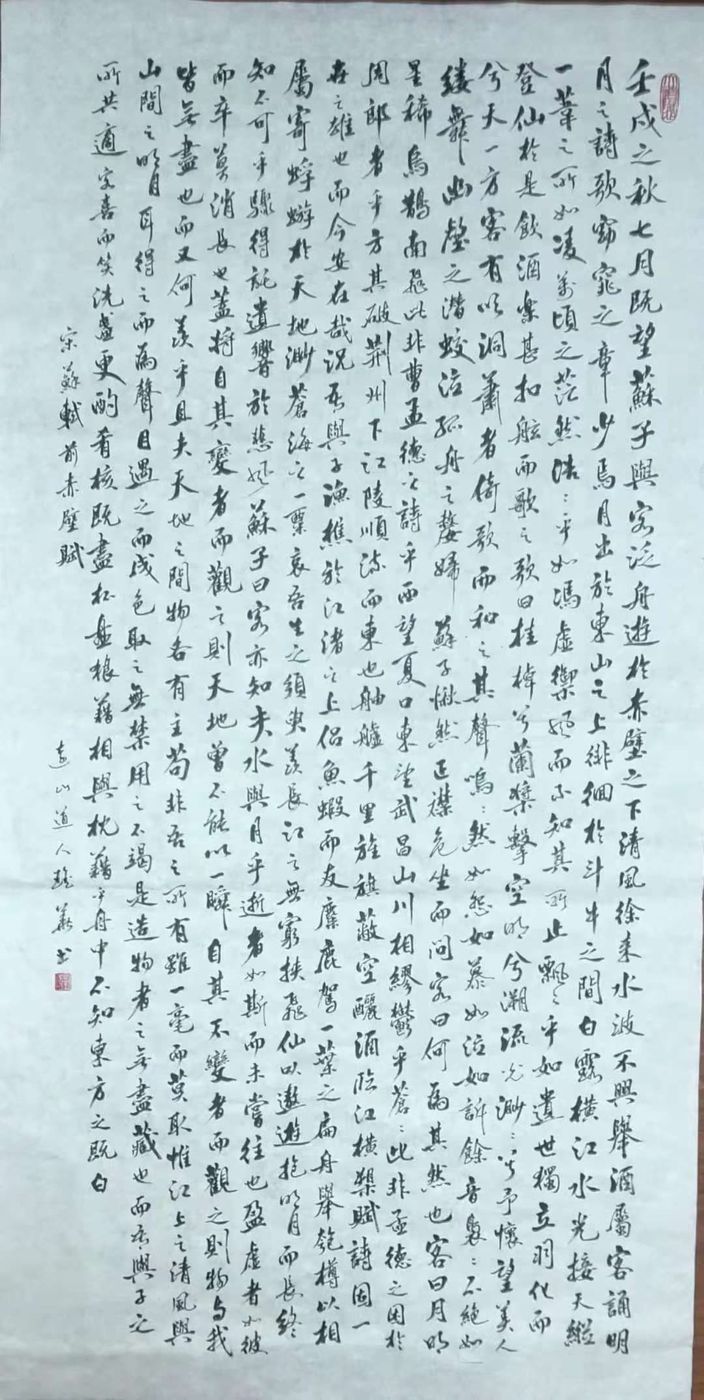 壬戌之秋七月既望蘇子與客泛舟遊於赤壁之下清風徐來水波不興舉酒屬客誦明
月之詩歌窈窕之章少焉月出於東山之上徘徊於斗牛之間白露橫江水光接天縱
一葦之所如凌萬頃之茫然浩：乎如馮虛御風而不知其所止飄：乎如遺世獨立羽化而
登仙於是飲酒樂甚扣舷而歌之歌曰桂棹兮蘭槳擊空明兮溯流光渺：兮予懷望美人
兮天一方客有吹洞簫者倚歌而和之其聲嗚：然如怨如慕如泣如訴餘音裊：不絕如
縷舞幽壑之潛蛟泣孤舟之嫠婦蘇子愀然正襟危坐而問客曰何為其然也客曰月明
星稀烏鵲南飛此非曹孟德之詩乎西望夏口東望武昌山川相繆鬱乎蒼：此非孟德之困於
周郎者乎方其破荊州下江陵順流而東也舳艫千里旌旗蔽空釃酒臨江橫槊賦詩固一
世之雄也而今安在哉況吾與子漁樵於江渚之上侶魚蝦而友麋鹿駕一葉之扁舟舉匏樽以相
屬寄蜉蝣於天地渺蒼海之一粟哀吾生之須臾羨長江之無窮挾飛仙以遨遊抱明月而長終
知不可乎驟得託遺響於悲風蘇子曰客亦知夫水與月乎逝者如斯而未嘗往也盈虛者如彼
而卒莫消長也蓋將自其變者而觀之則天地曾不能以一瞬自其不變者而觀之則物與我
皆無盡也而又何羨乎且夫天地之間物各有主苟非吾之所有雖一毫而莫取惟江上之清風與
山間之明月耳得之而為聲目遇之而成色取之無禁用之不竭是造物者之無盡藏也而吾與子之
所共適客喜而笑洗盞更酌肴核既盡杯盤狼藉相與枕藉乎舟中不知東方之既白
宋蘇軾前赤壁賦
道人